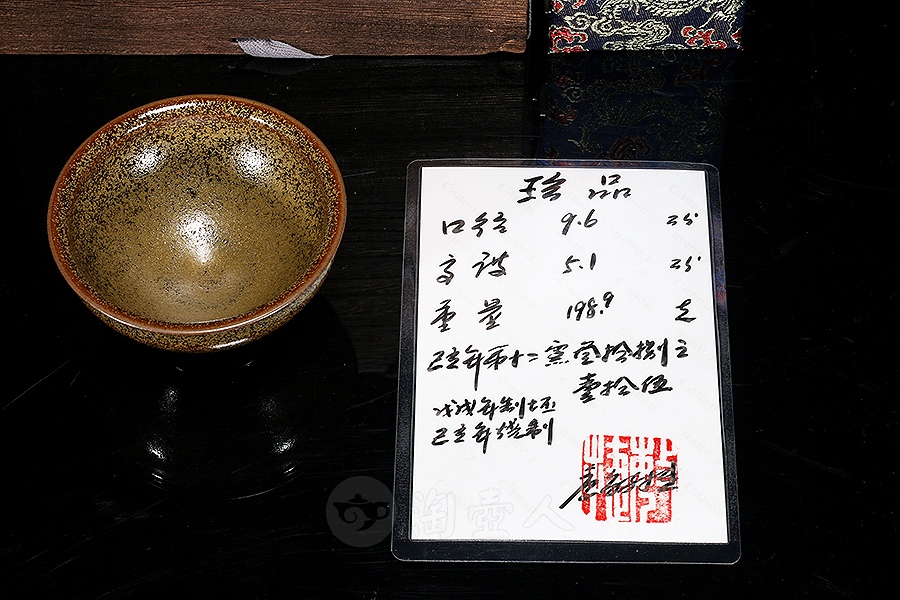 珍品
口径 9.6 公分
高 5.1 公分
重量 198.9 克
己亥年第十二窯壹拾捌之
壹拾伍
戊戌年制坯
己亥年燒制
淘壶人